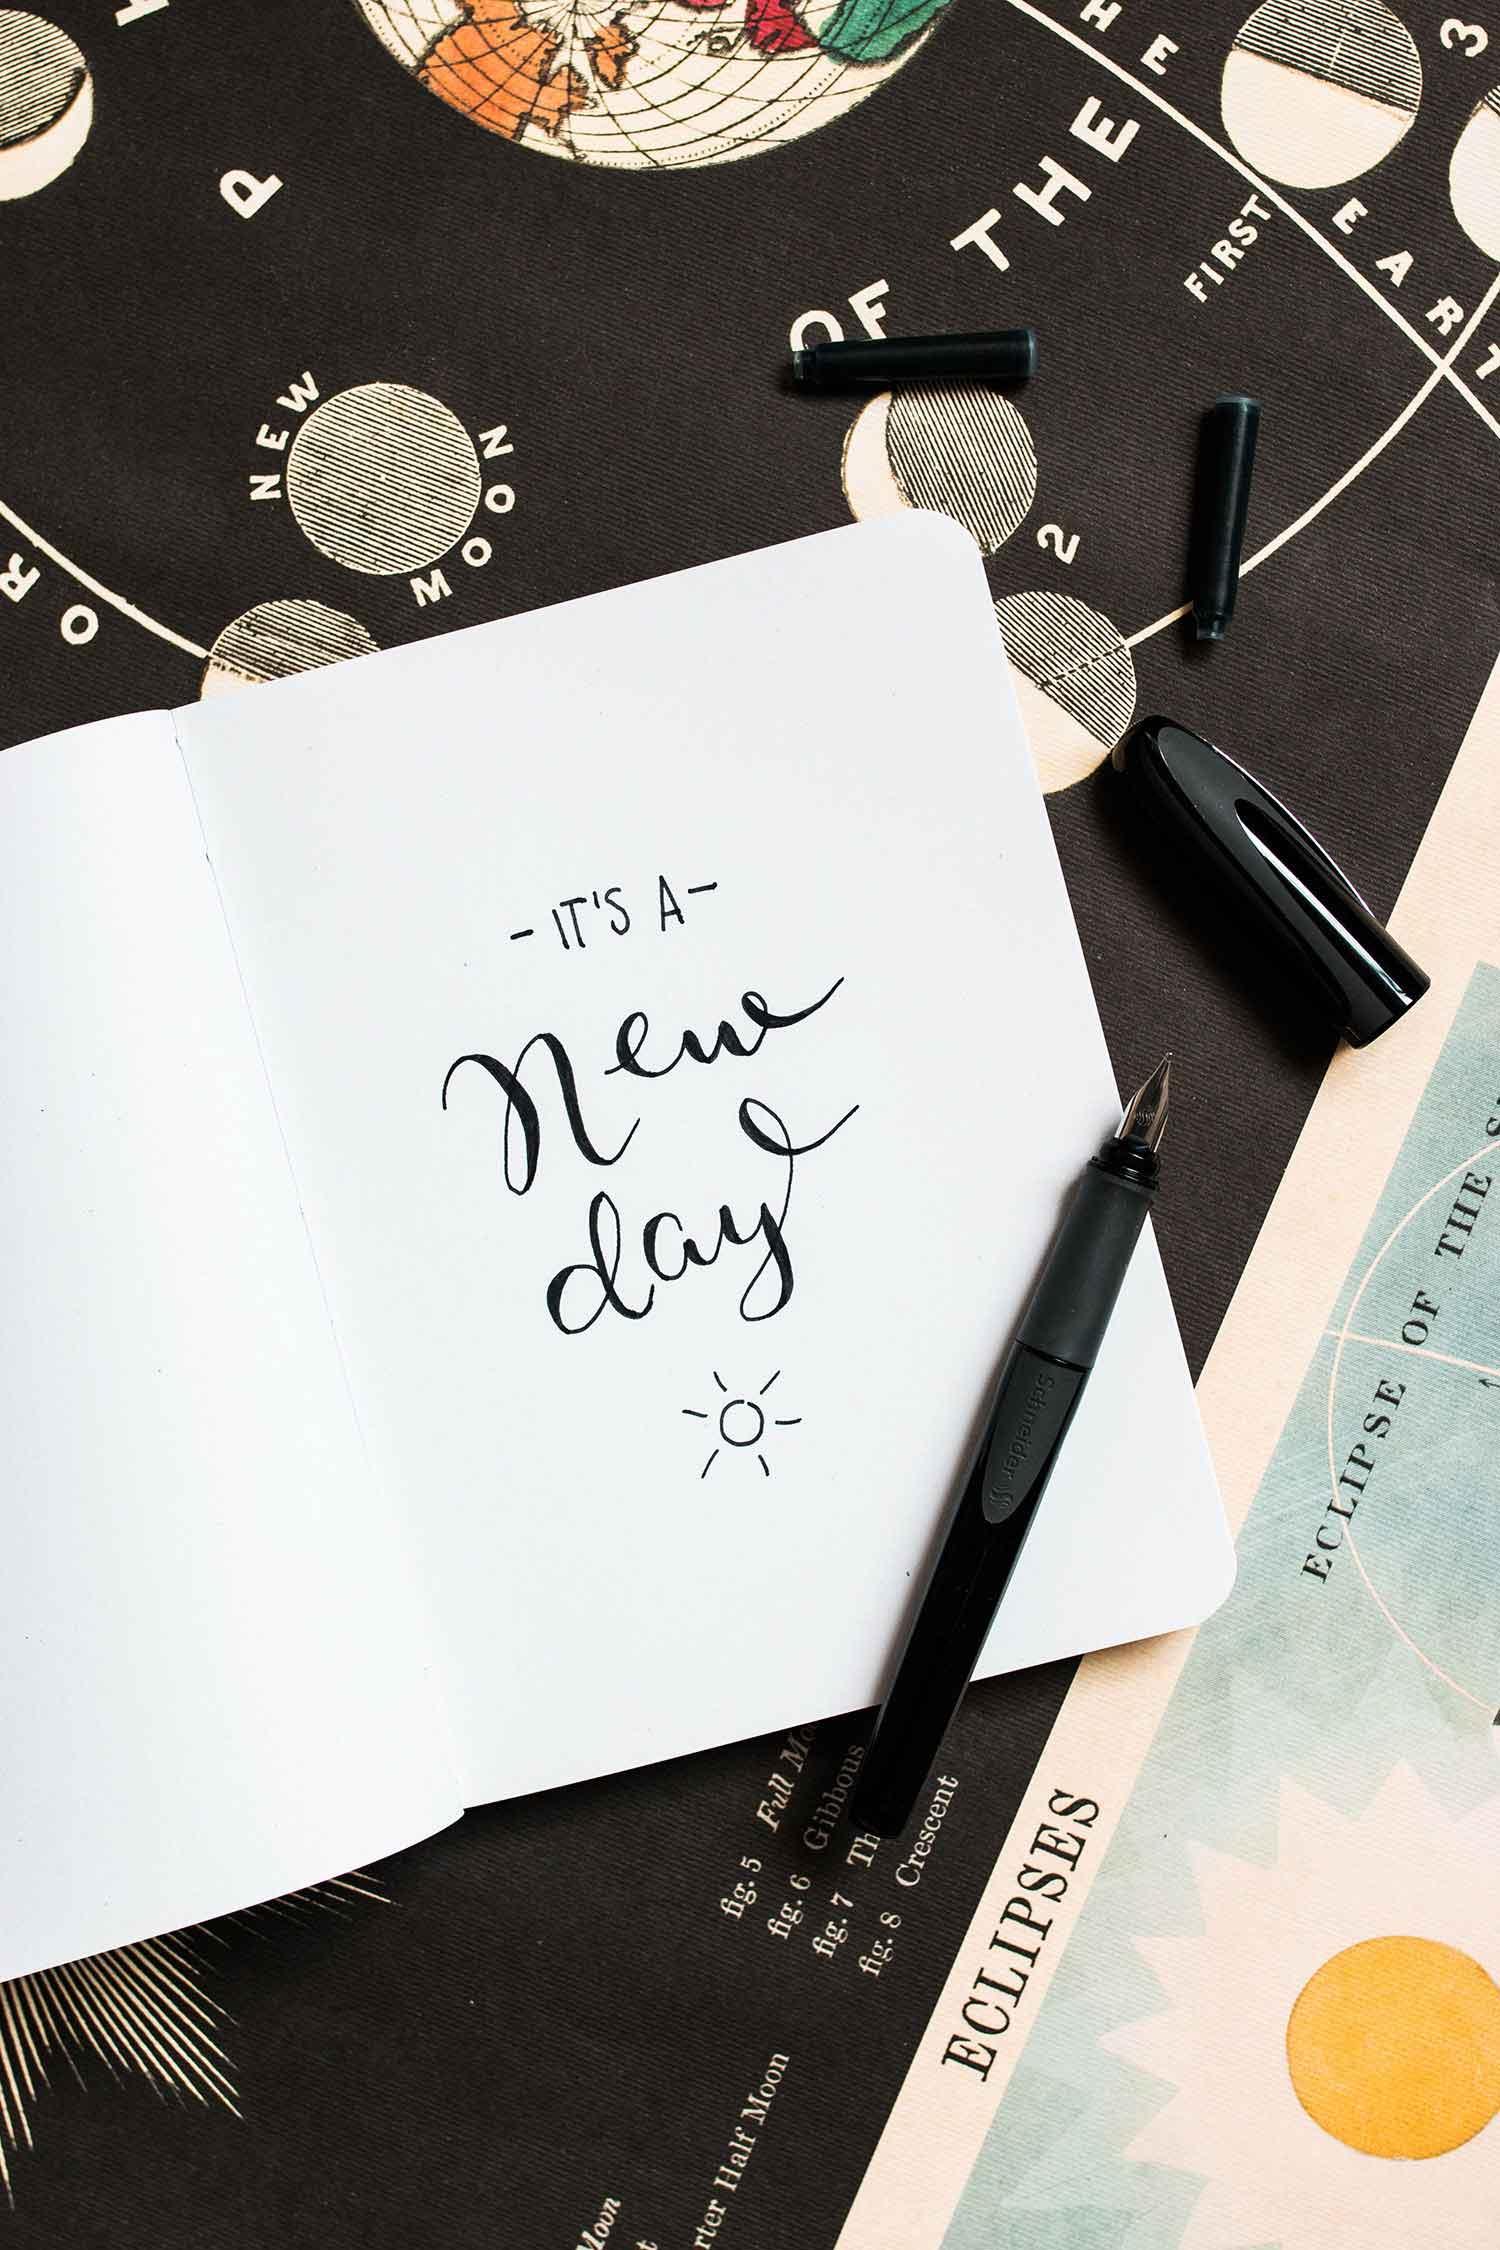 P
OF THE
THE EARTH
FIRST
3
NEW MOON
2
ORO
- IT'S A -
New
day
Schneider
ECLIPSE OF THE
ECLIPSES
fig. 5 Full
fig. 6 Gibbous
fig. 7
fig. 8 Crescent
Half Moon
Moon